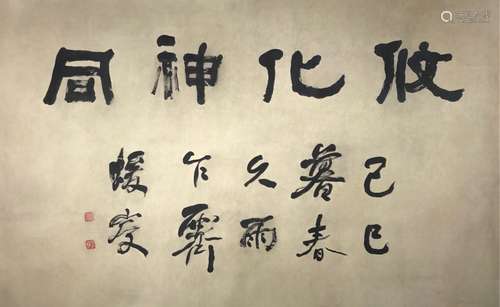 攸化神同
己巳
暮春
久雨
乍霽
蝯叟